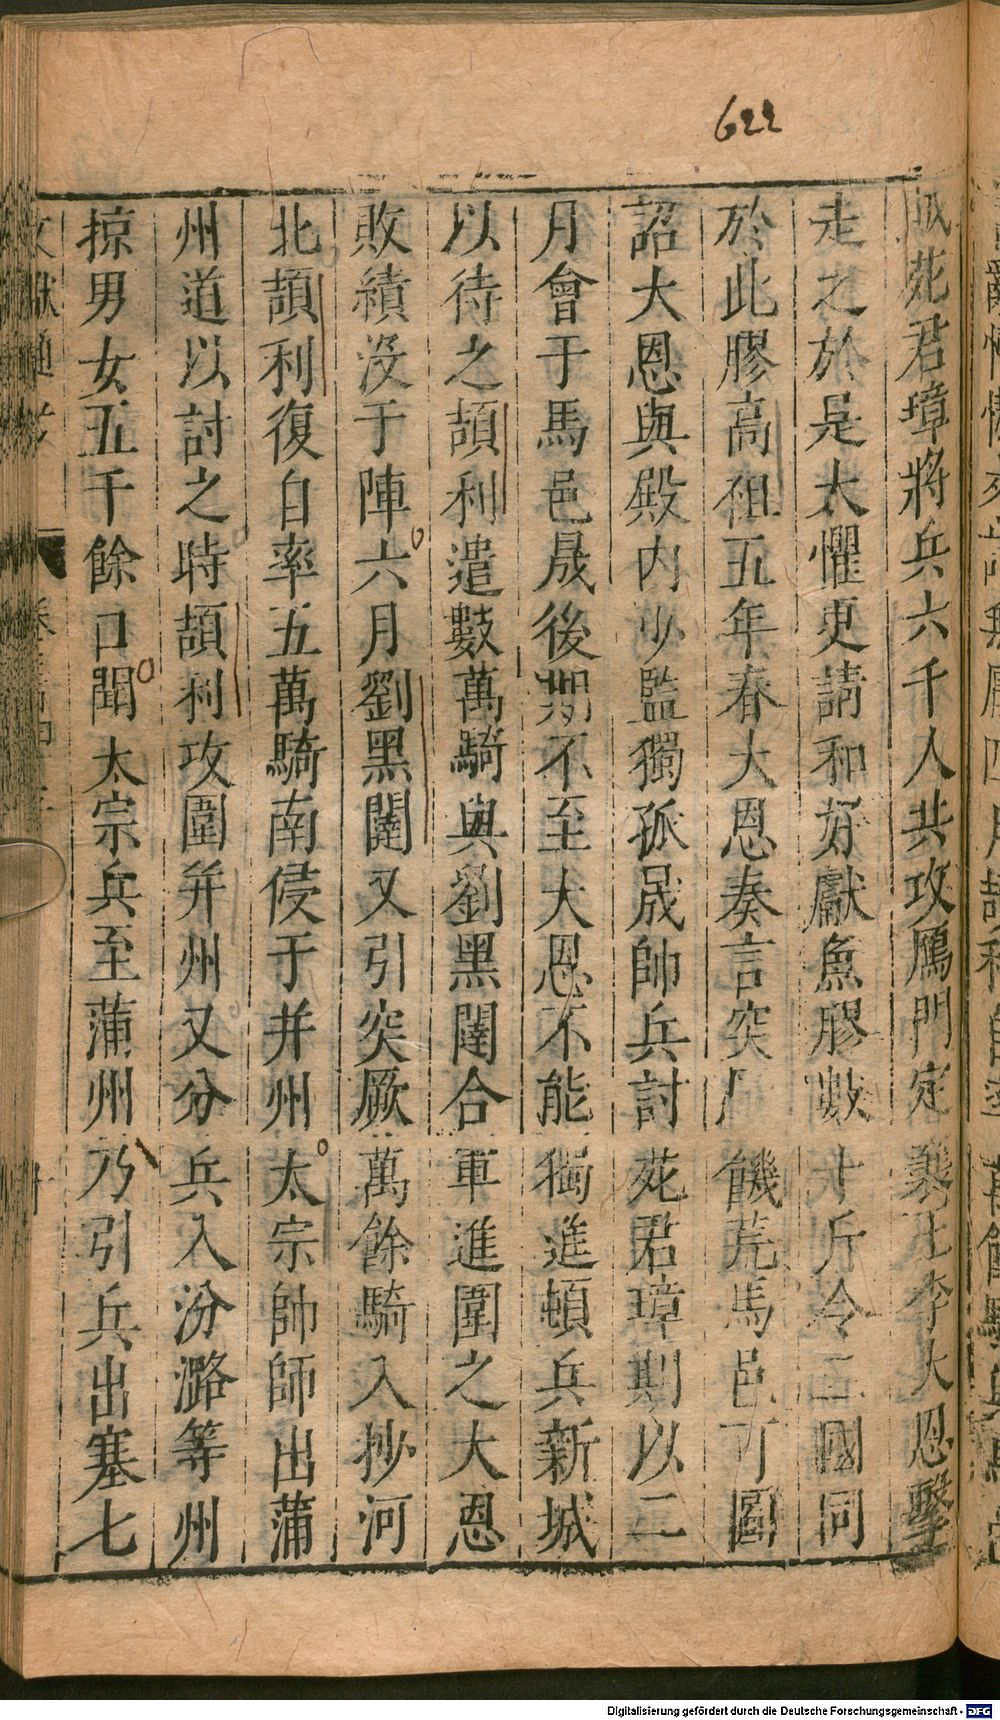 622
賊苑君璋將兵六千人共攻鴈門定襄王李大恩擊
走之於是大懼更請和好獻魚膠數十斤令二國同
於此膠高祖五年春大恩奏言突厥饑荒馬邑可圖
詔大恩與殿內少監獨孤晟帥兵討苑君璋期以二
月會于馬邑晟後期不至大恩不能獨進頓兵新城
以待之頡利遣數萬騎與劉黑闥合軍進圍之大恩
敗績沒于陣六月劉黑闥又引突厥萬餘騎入抄河
北頡利復自率五萬騎南侵于并州太宗帥師出蒲
州道以討之時頡利攻圍并州又分兵入汾潞等州
掠男女五千餘口聞太宗兵至蒲州乃引兵出塞七
文獻通考
Digitalisierung gefördert durch die Deutsche Forschungsgemeinschaft - DFG